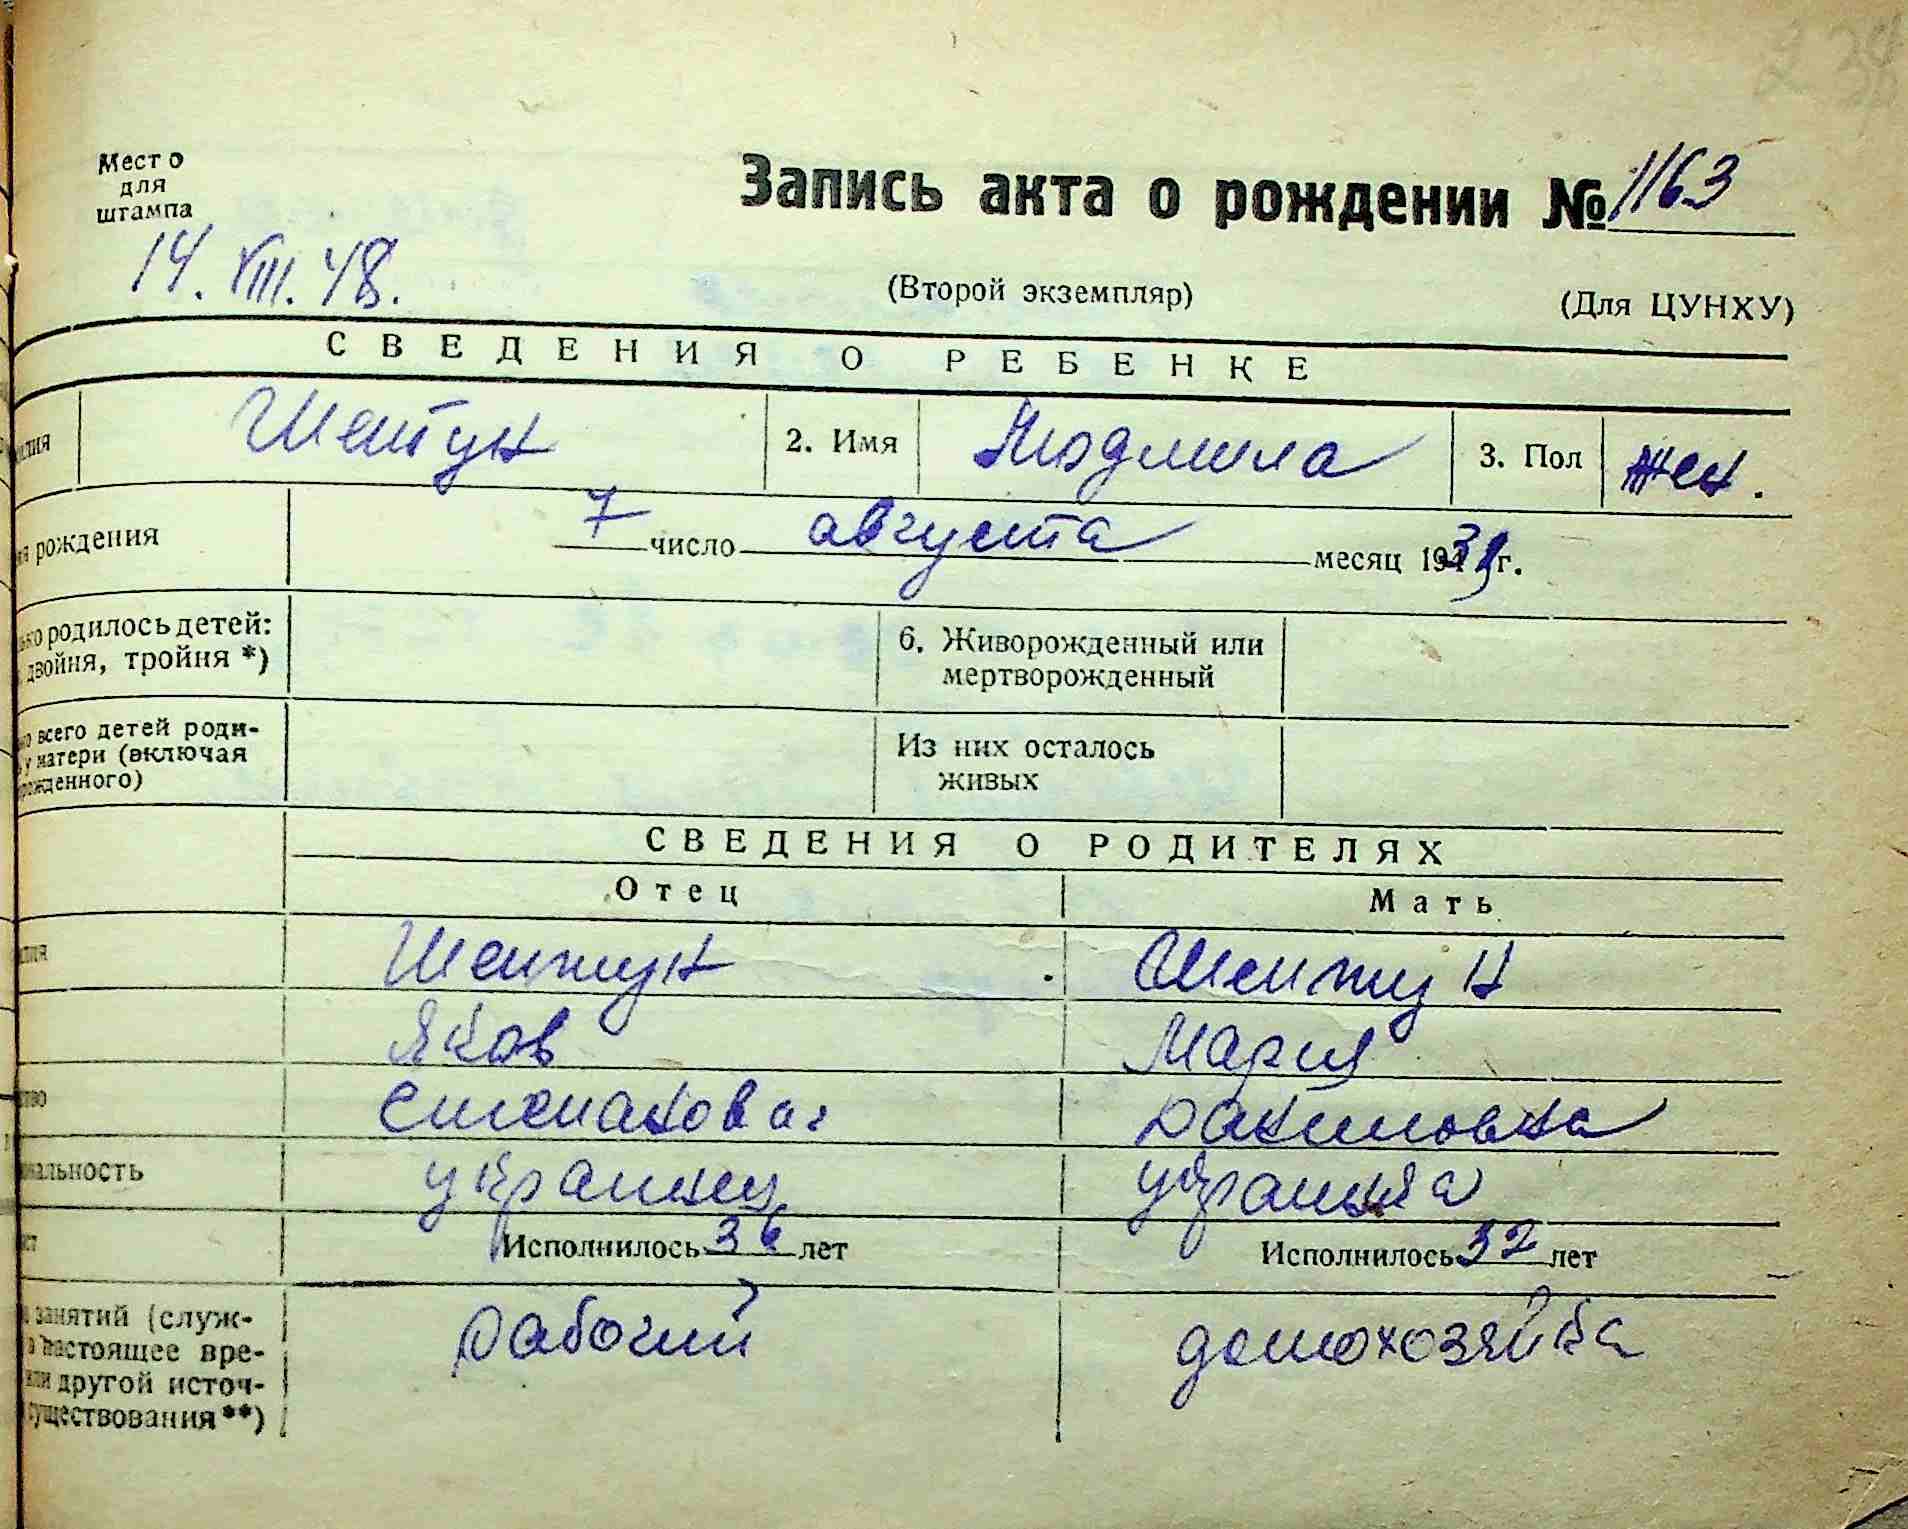 238
Место
для
штампа
Запись акта о рождении № 1163
14. VIII. 48.
(Второй экземпляр)
(Для ЦУНХУ)
СВЕДЕНИЯ О РЕБЕНКЕ
илия Шептун 2. Имя Людмила 3. Пол жен.
мя рождения 7 число августа месяц 1939 г.
ько родилось детей:
двойня, тройня *)
6. Живорожденный или
мертворожденный
но всего детей роди-
у матери (включая
рожденного)
Из них осталось
живых
СВЕДЕНИЯ О РОДИТЕЛЯХ
Отец Мать
илия Шептун Шептун
Яков Мария
ство Степанович Иакимовна
ональность украинец украинка
ст Исполнилось 36 лет Исполнилось 32 лет
занятий (служ-
в настоящее вре-
или другой источ-
существования **)
рабочий домохозяйка